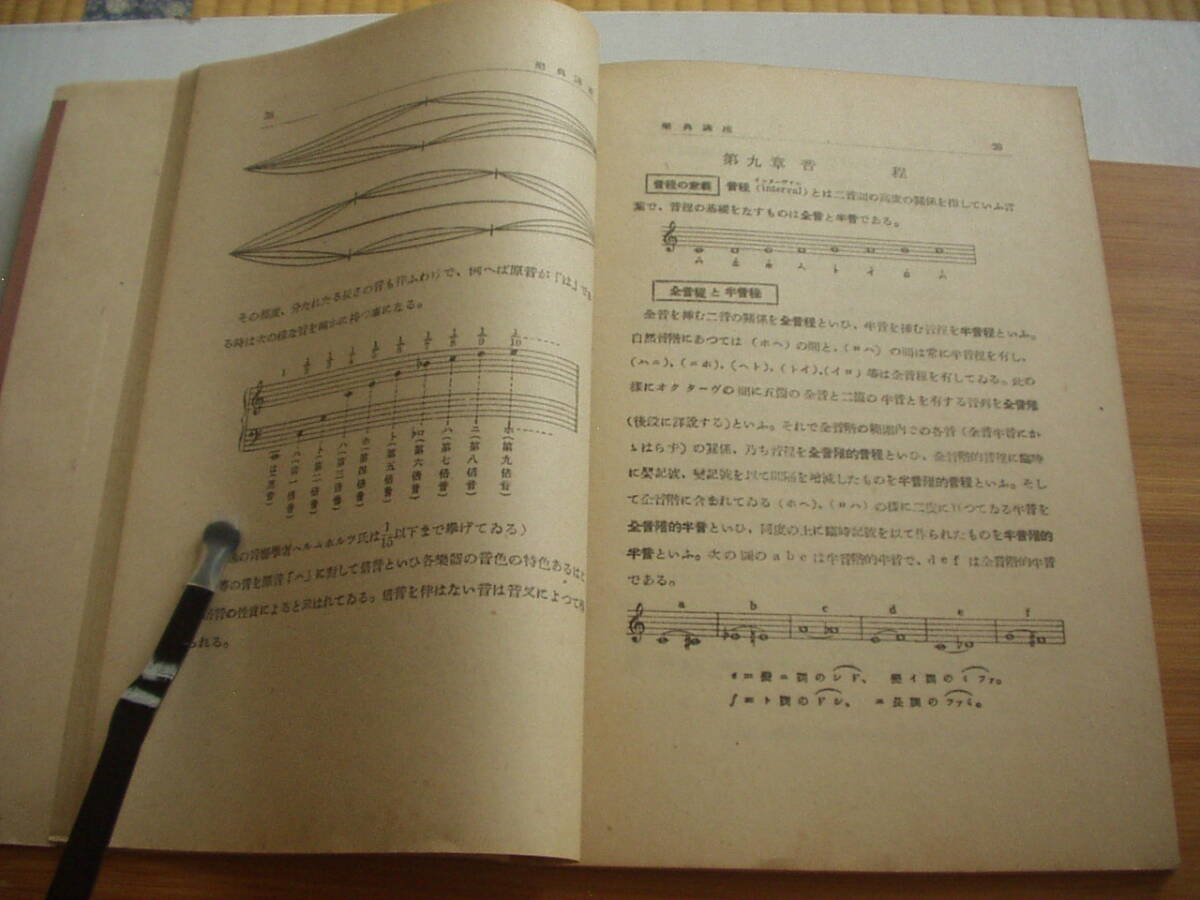 樂典講座
28
その都度、分たれたる長さの音も伴ふわけで、例へば原音が「は」であ
る時は次の様な音を確かに持つ事になる。
1 1/2 1/3 1/4 1/5 1/6 1/7 1/8 1/9 1/10
ハ(第一倍音)
ト(第二倍音)
ハ(第三倍音)
ホ(第四倍音)
ト(第五倍音)
變ロ(第六倍音)
ハ(第七倍音)
ニ(第八倍音)
ホ(第九倍音)
の音響學者ヘルムホルツ氏は1/15以下まで擧げてゐる)
等の音を原音「ハ」に對して倍音といひ各樂器の音色の特色あるはこ
倍音の性質によると云はれてゐる。倍音を伴はない音は音叉によつて得
られる。
樂典講座
29
第九章 音 程
音程の意義 音程(interval)とは二音間の高度の關係を指していふ言
インターヴァル
葉で、音程の基礎をなすものは全音と半音である。
ハ ニ ホ ヘ ト イ ロ ハ
全音程と半音程
全音を挿む二音の關係を全音程といひ、半音を挿む音程を半音程といふ。
自然音階にあつては(ホヘ)の間と、(ロハ)の間は常に半音程を有し、
(ハニ)、(ニホ)、(ヘト)、(トイ)、(イロ)等は全音程を有してゐる。此の
樣にオクターヴの間に五箇の全音と二箇の半音とを有する音列を全音階
(後段に詳說する)といふ。それで全音階の範圍内での各音(全音半音にか
ゝはらず)の關係、乃ち音程を全音階的音程といひ、全音階的音程に臨時
に嬰記號、變記號を以て間隔を增減したものを半音階的音程といふ。そし
て全音階に含まれてゐる(ホヘ)、(ロハ)の樣に二度に亘つてゐる半音を
全音階的半音といひ、同度の上に臨時記號を以て作られたものを半音階的
半音といふ。次の圖のabcは半音階的半音で、defは全音階的半音
である。
a b c d e f
e＝變ニ調のシド、 變イ調のミファ。
f＝ト調のドシ、 ニ長調のファミ。